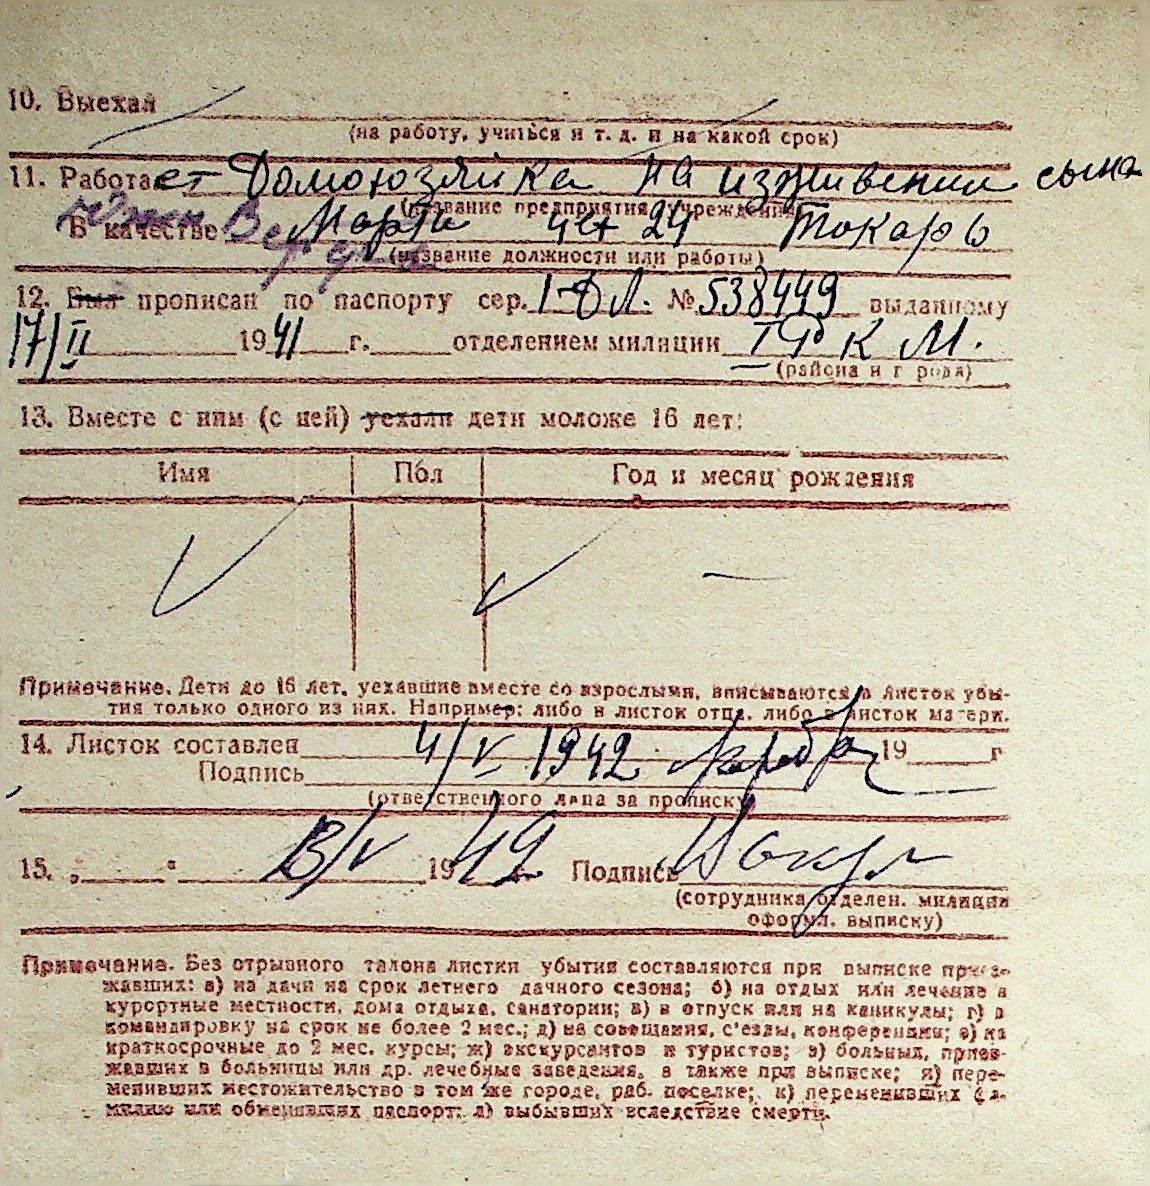 10. Выехал
(на работу, учиться и т. д. и на какой срок)
11. Работает Домохозяйка на иждивении сына
(название предприятия учреждения)
В качестве Марти цех 24 Токарь
(название должности или работы)
12. Был прописан по паспорту сер. I-ДЛ. № 538449 выданному
17/II 1941 г. отделением милиции РКМ.
(района и города)
13. Вместе с ним (с ней) уехали дети моложе 16 лет:
Имя Пол Год и месяц рождения
Примечание. Дети до 16 лет, уехавшие вместе со взрослыми, вписываются в листок убы-
тия только одного из них. Например: либо в листок отца, либо в листок матери.
14. Листок составлен 4/V 1942 19 г
Подпись
(ответственного лица за прописку)
15. „ “ /V 1942 Подпись
(сотрудника отделен. милиции
оформл. выписку)
Примечание. Без отрывного талона листки убытия составляются при выписке приез-
жавших: а) на дачи на срок летнего дачного сезона; б) на отдых или лечение в
курортные местности, дома отдыха, санатории; в) в отпуск или на каникулы; г) в
командировку на срок не более 2 мес.; д) на совещания, с'езды, конференции; е) на
краткосрочные до 2 мес. курсы; ж) экскурсантов и туристов; з) больных, приез-
жавших в больницы или др. лечебные заведения, а также при выписке; и) пере-
менивших местожительство в том же городе, раб. поселке; к) переменивших фа-
милию или обменявших паспорт; л) выбывших вследствие смерти.